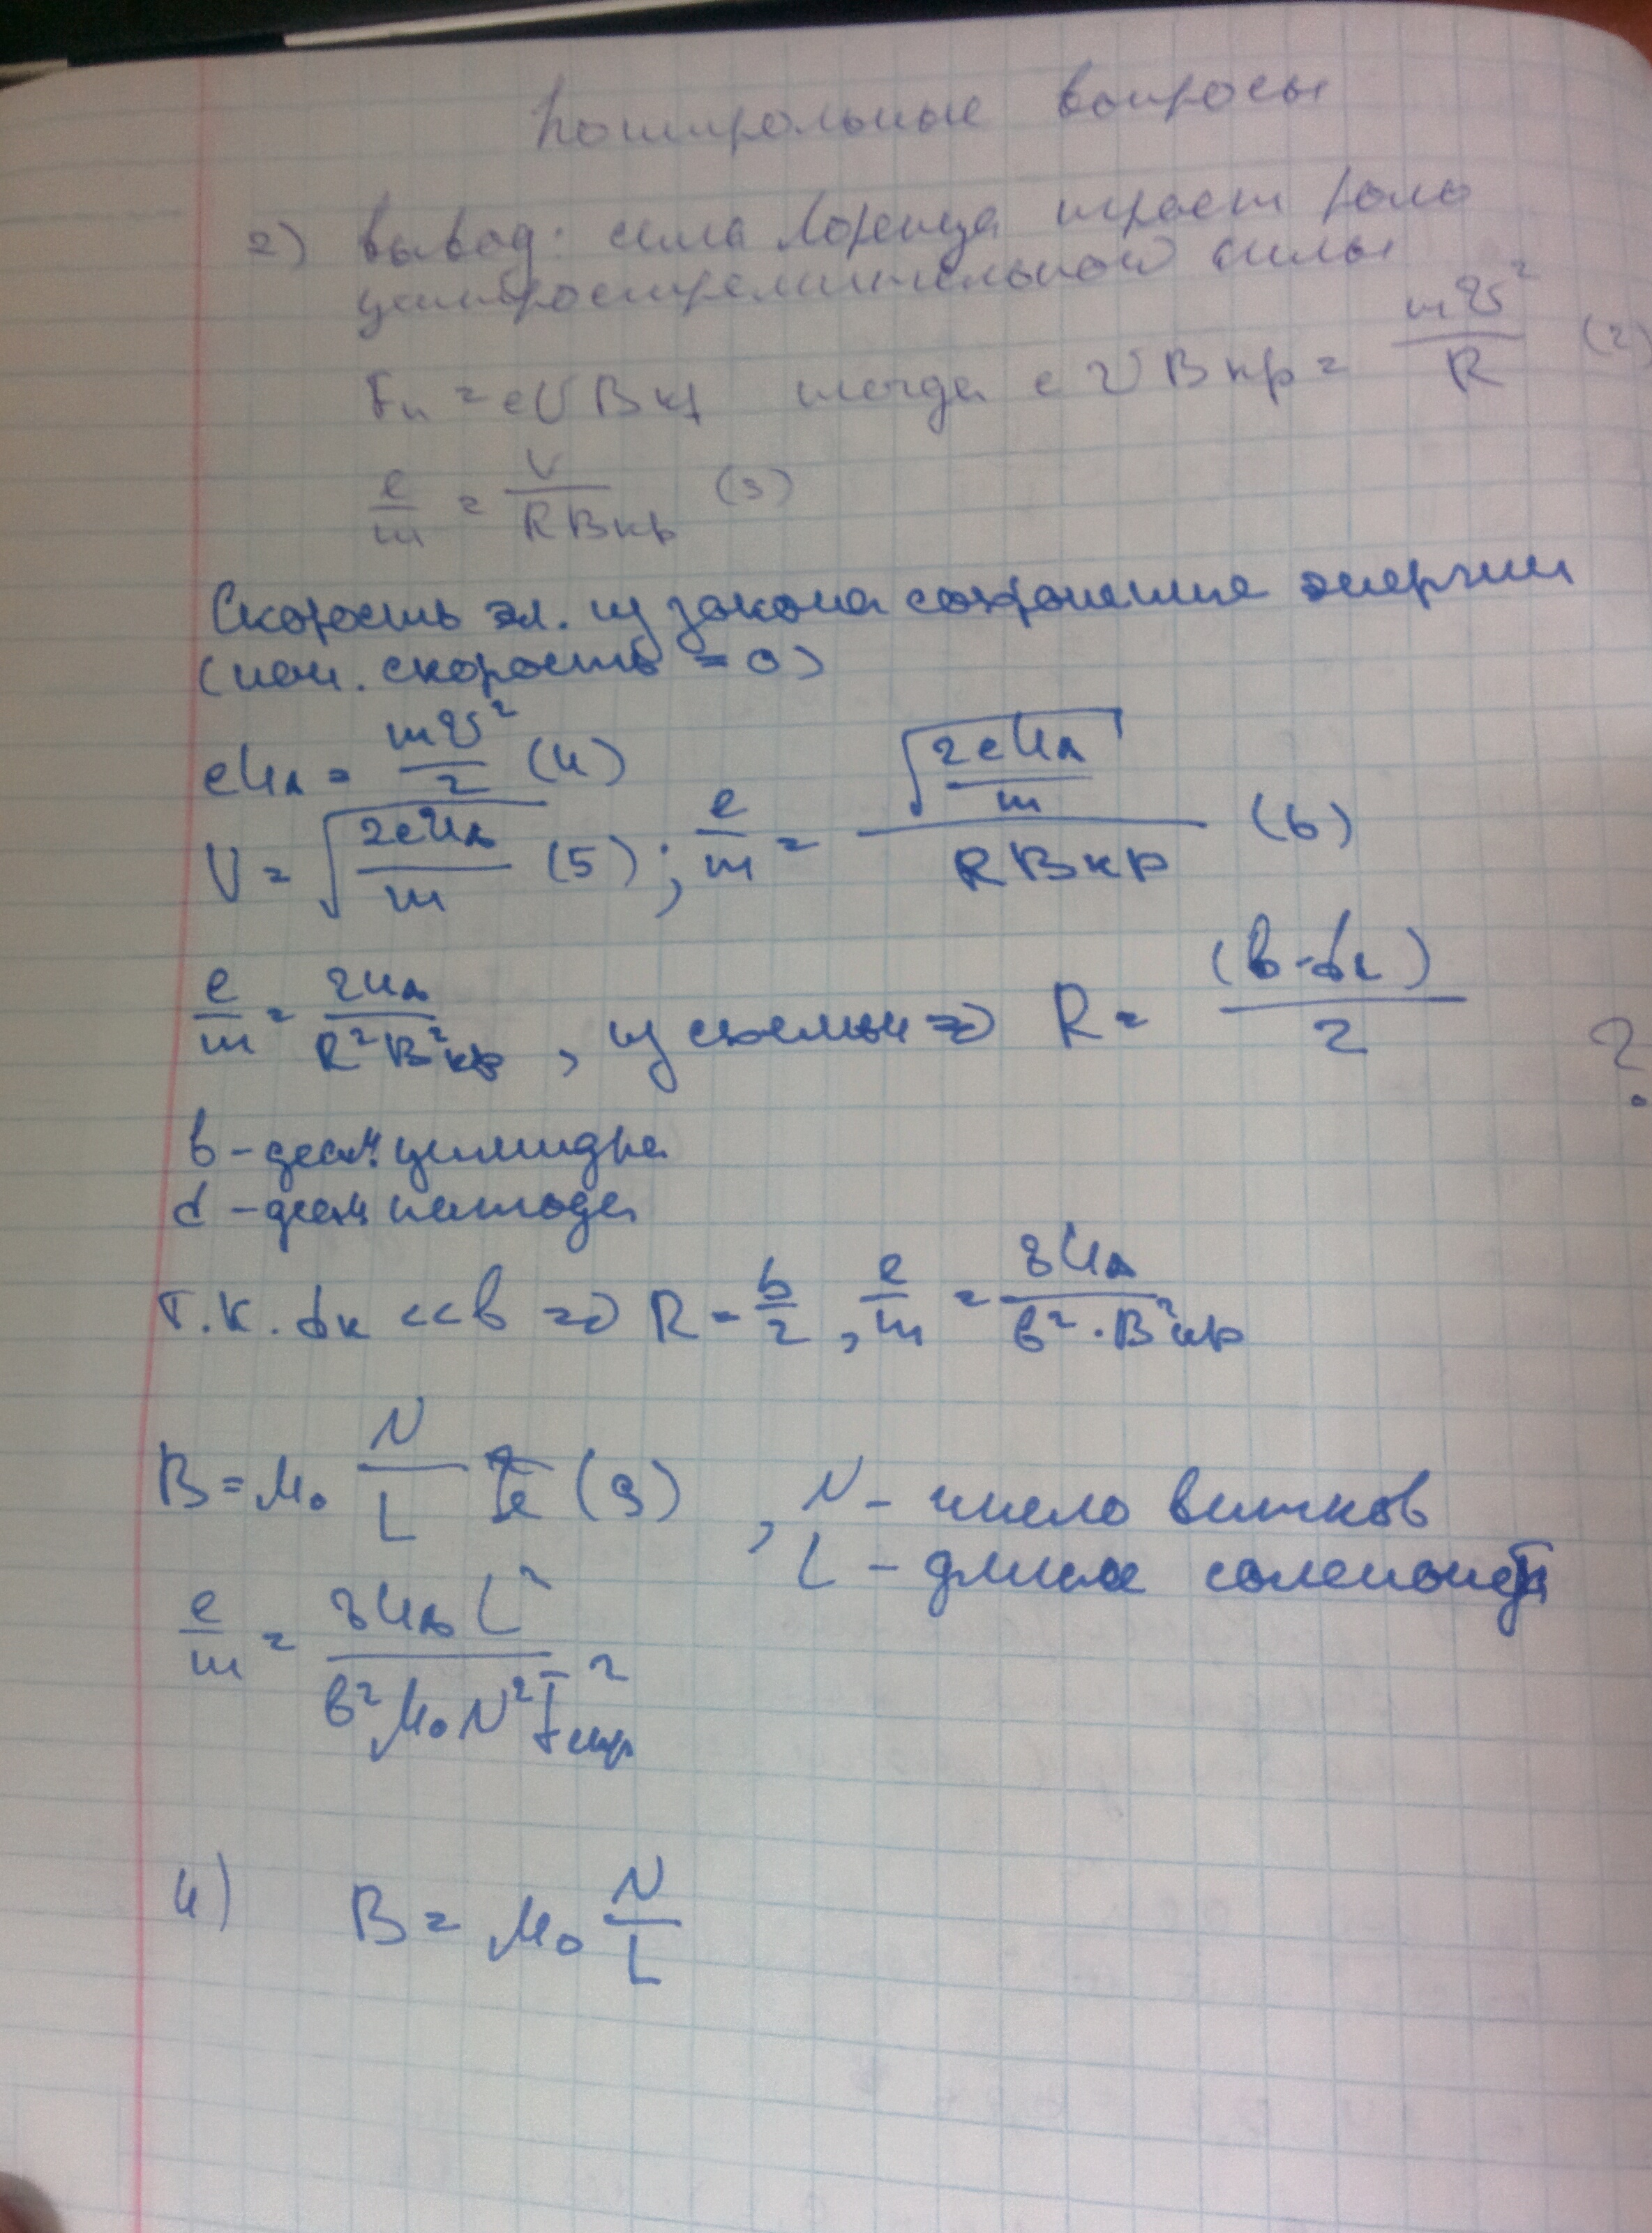 Контрольные вопросы
2) вывод: сила Лоренца играет роль
центростремительной силы
Fл = eVBкр тогда eVBкр = mV²/R (2)
e/m = V/RBкр (3)
Скорость эл. из закона сохранение энергии
(нач. скорость = 0)
eUA = mV²/2 (4)
V = √(2eUA/m) (5); e/m = √(2eUA/m)/RBкр (6)
e/m = 2UA/R²B²кр, из схемы => R = (b-dк)/2 ?
b - диам. цилиндра
d - диам катода
Т.К. dк << b => R = b/2, e/m = 8UA/b²·B²кр
B = μ₀ N/L Ic (9), N - число витков
L - длина соленоида
e/m = 8UA L²/b²μ₀N²I²кр
4) B = μ₀ N/L